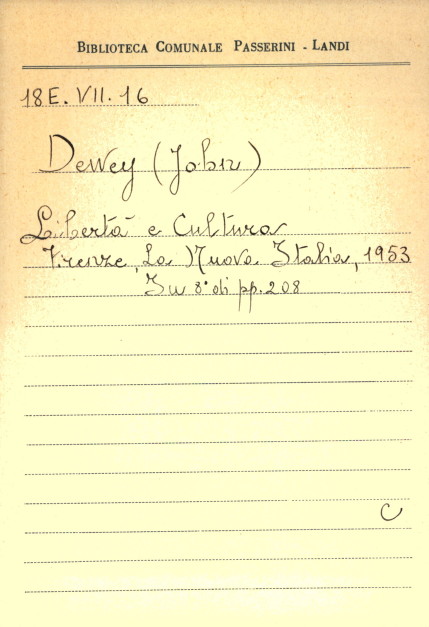 BIBLIOTECA COMUNALE PASSERINI - LANDI
18E. VII. 16
Dewey (John)
Libertà e Cultura
Firenze, La Nuova Italia, 1953
In 8° di pp. 208
C